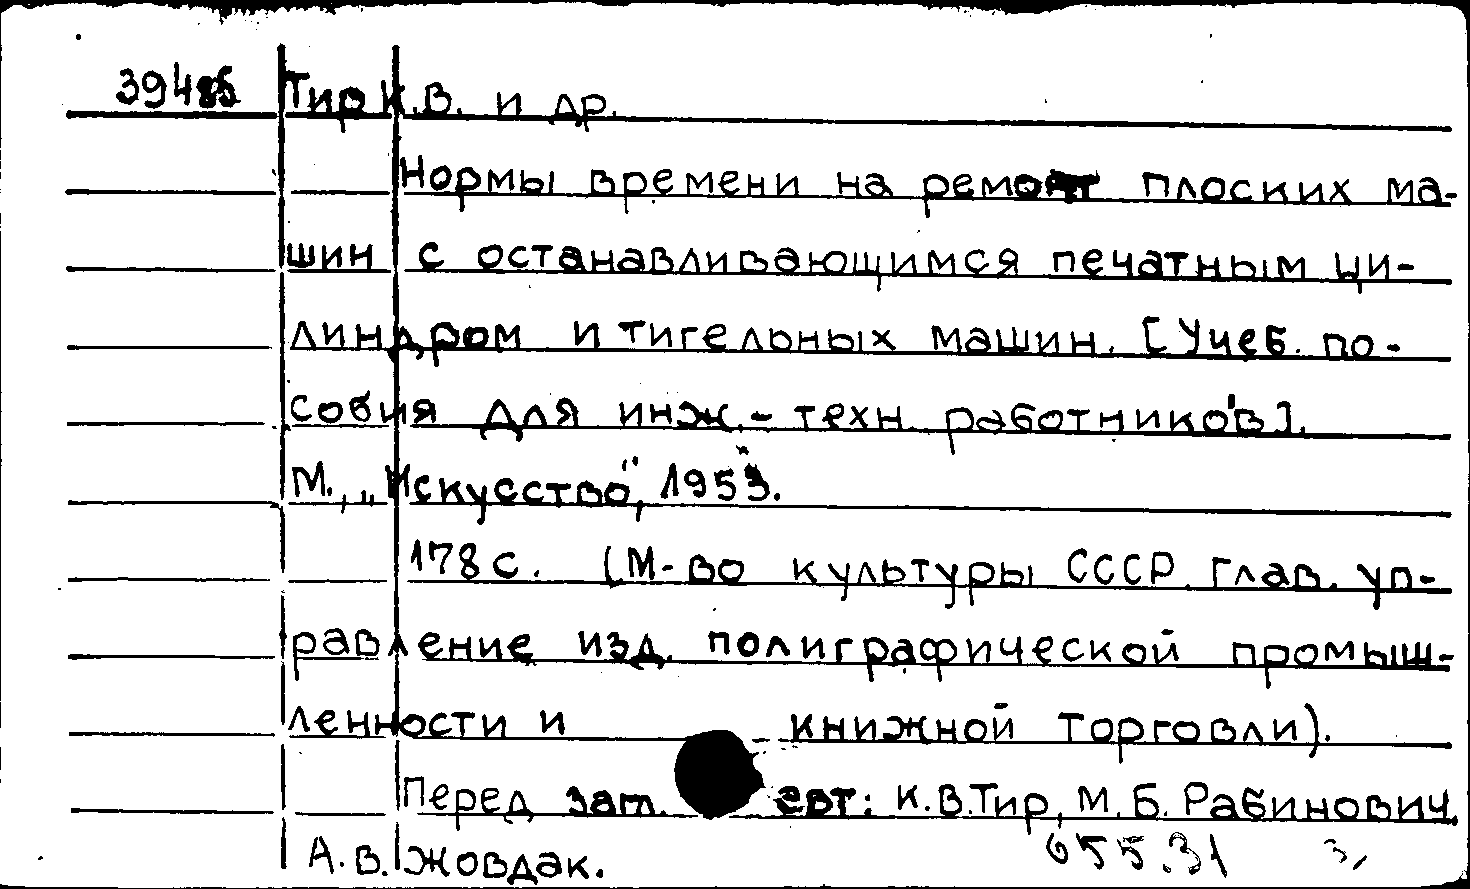 39485 Тир К.В. и др.
Нормы времени на ремонт плоских ма-
шин с останавливающимся печатным ци-
линдром и тигельных машин. [Учеб. по-
собия для инж.- техн. работников].
М., „Искусство", 1953.
178 с. (М-во культуры СССР. Глав. уп-
равление изд. полиграфической промыш-
ленности и книжной торговли).
Перед заг. авт: К.В.Тир, М.Б.Рабинович,
А.В. Жовдак.
655.31 3,